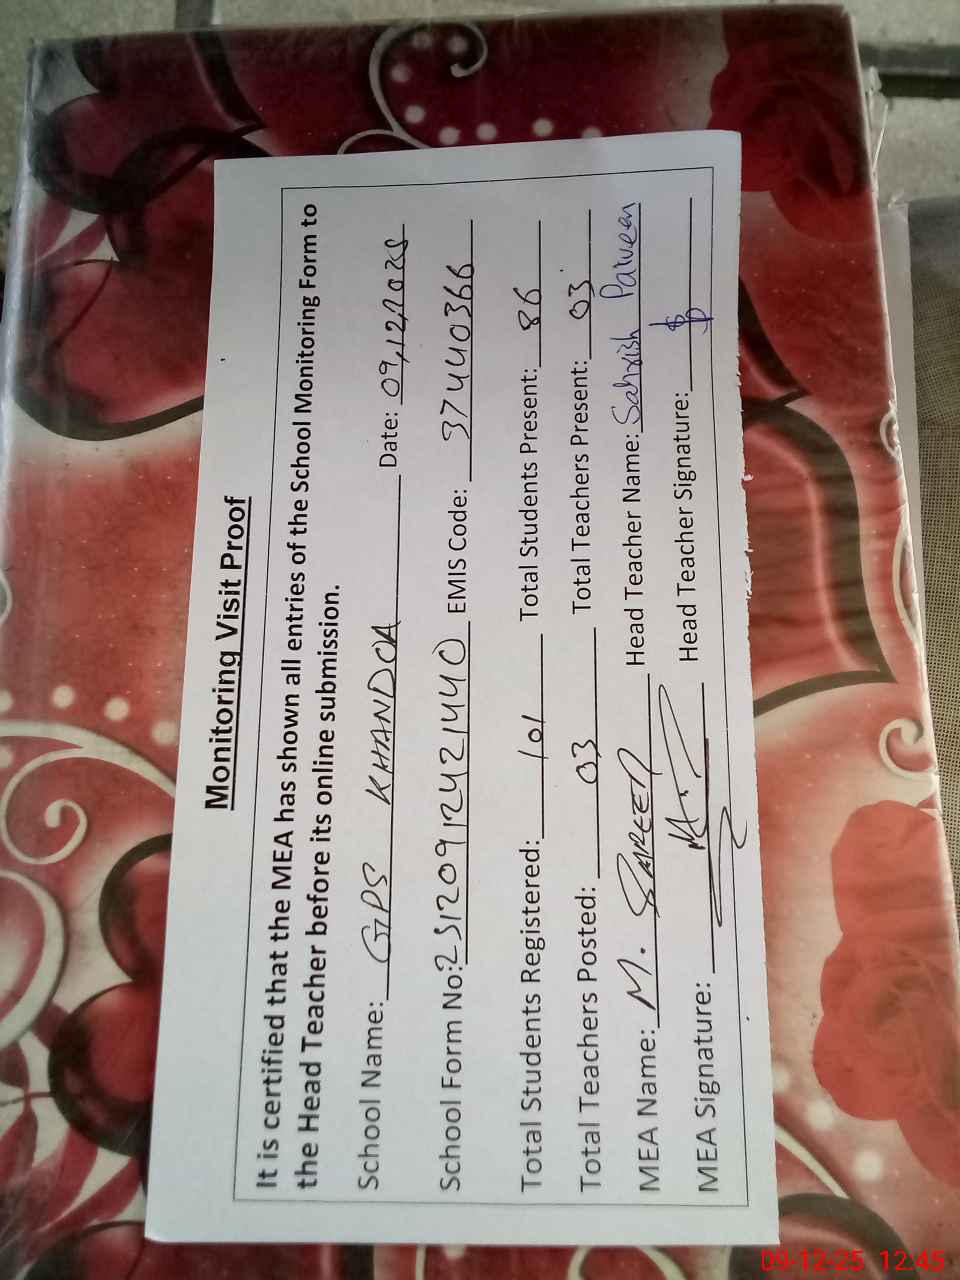 Monitoring Visit Proof
It is certified that the MEA has shown all entries of the School Monitoring Form to
the Head Teacher before its online submission.
School Name: GPS KHANDOA Date: 09,12,2025
School Form No: 251209124421440 EMIS Code: 37440366
Total Students Registered: 101 Total Students Present: 86
Total Teachers Posted: 03 Total Teachers Present: 03
MEA Name: M. Head Teacher Name: Sahrish Parveen
MEA Signature: Head Teacher Signature:
09-12-25 12:45